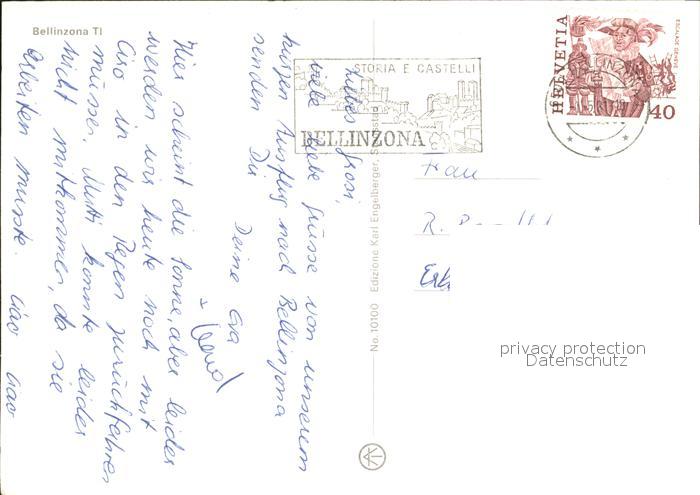 Bellinzona TI
STORIA E CASTELLI
BELLINZONA
HELVETIA
ESCALADE GENÈVE
40
Liebes Grosi,
viele liebe Grüsse von unserem
kurzen Ausflug nach Bellinzona
senden Dir
Deine Eva
Hier scheint die Sonne, aber leider
werden wir heute noch mit
Ciso in den Regen zurückfahren
müssen. Mutti konnte leider
nicht mitkommen, da sie
arbeiten musste. Ciao ciao
No. 10100 Edizione Karl Engelberger,
Frau
R.
privacy protection
Datenschutz